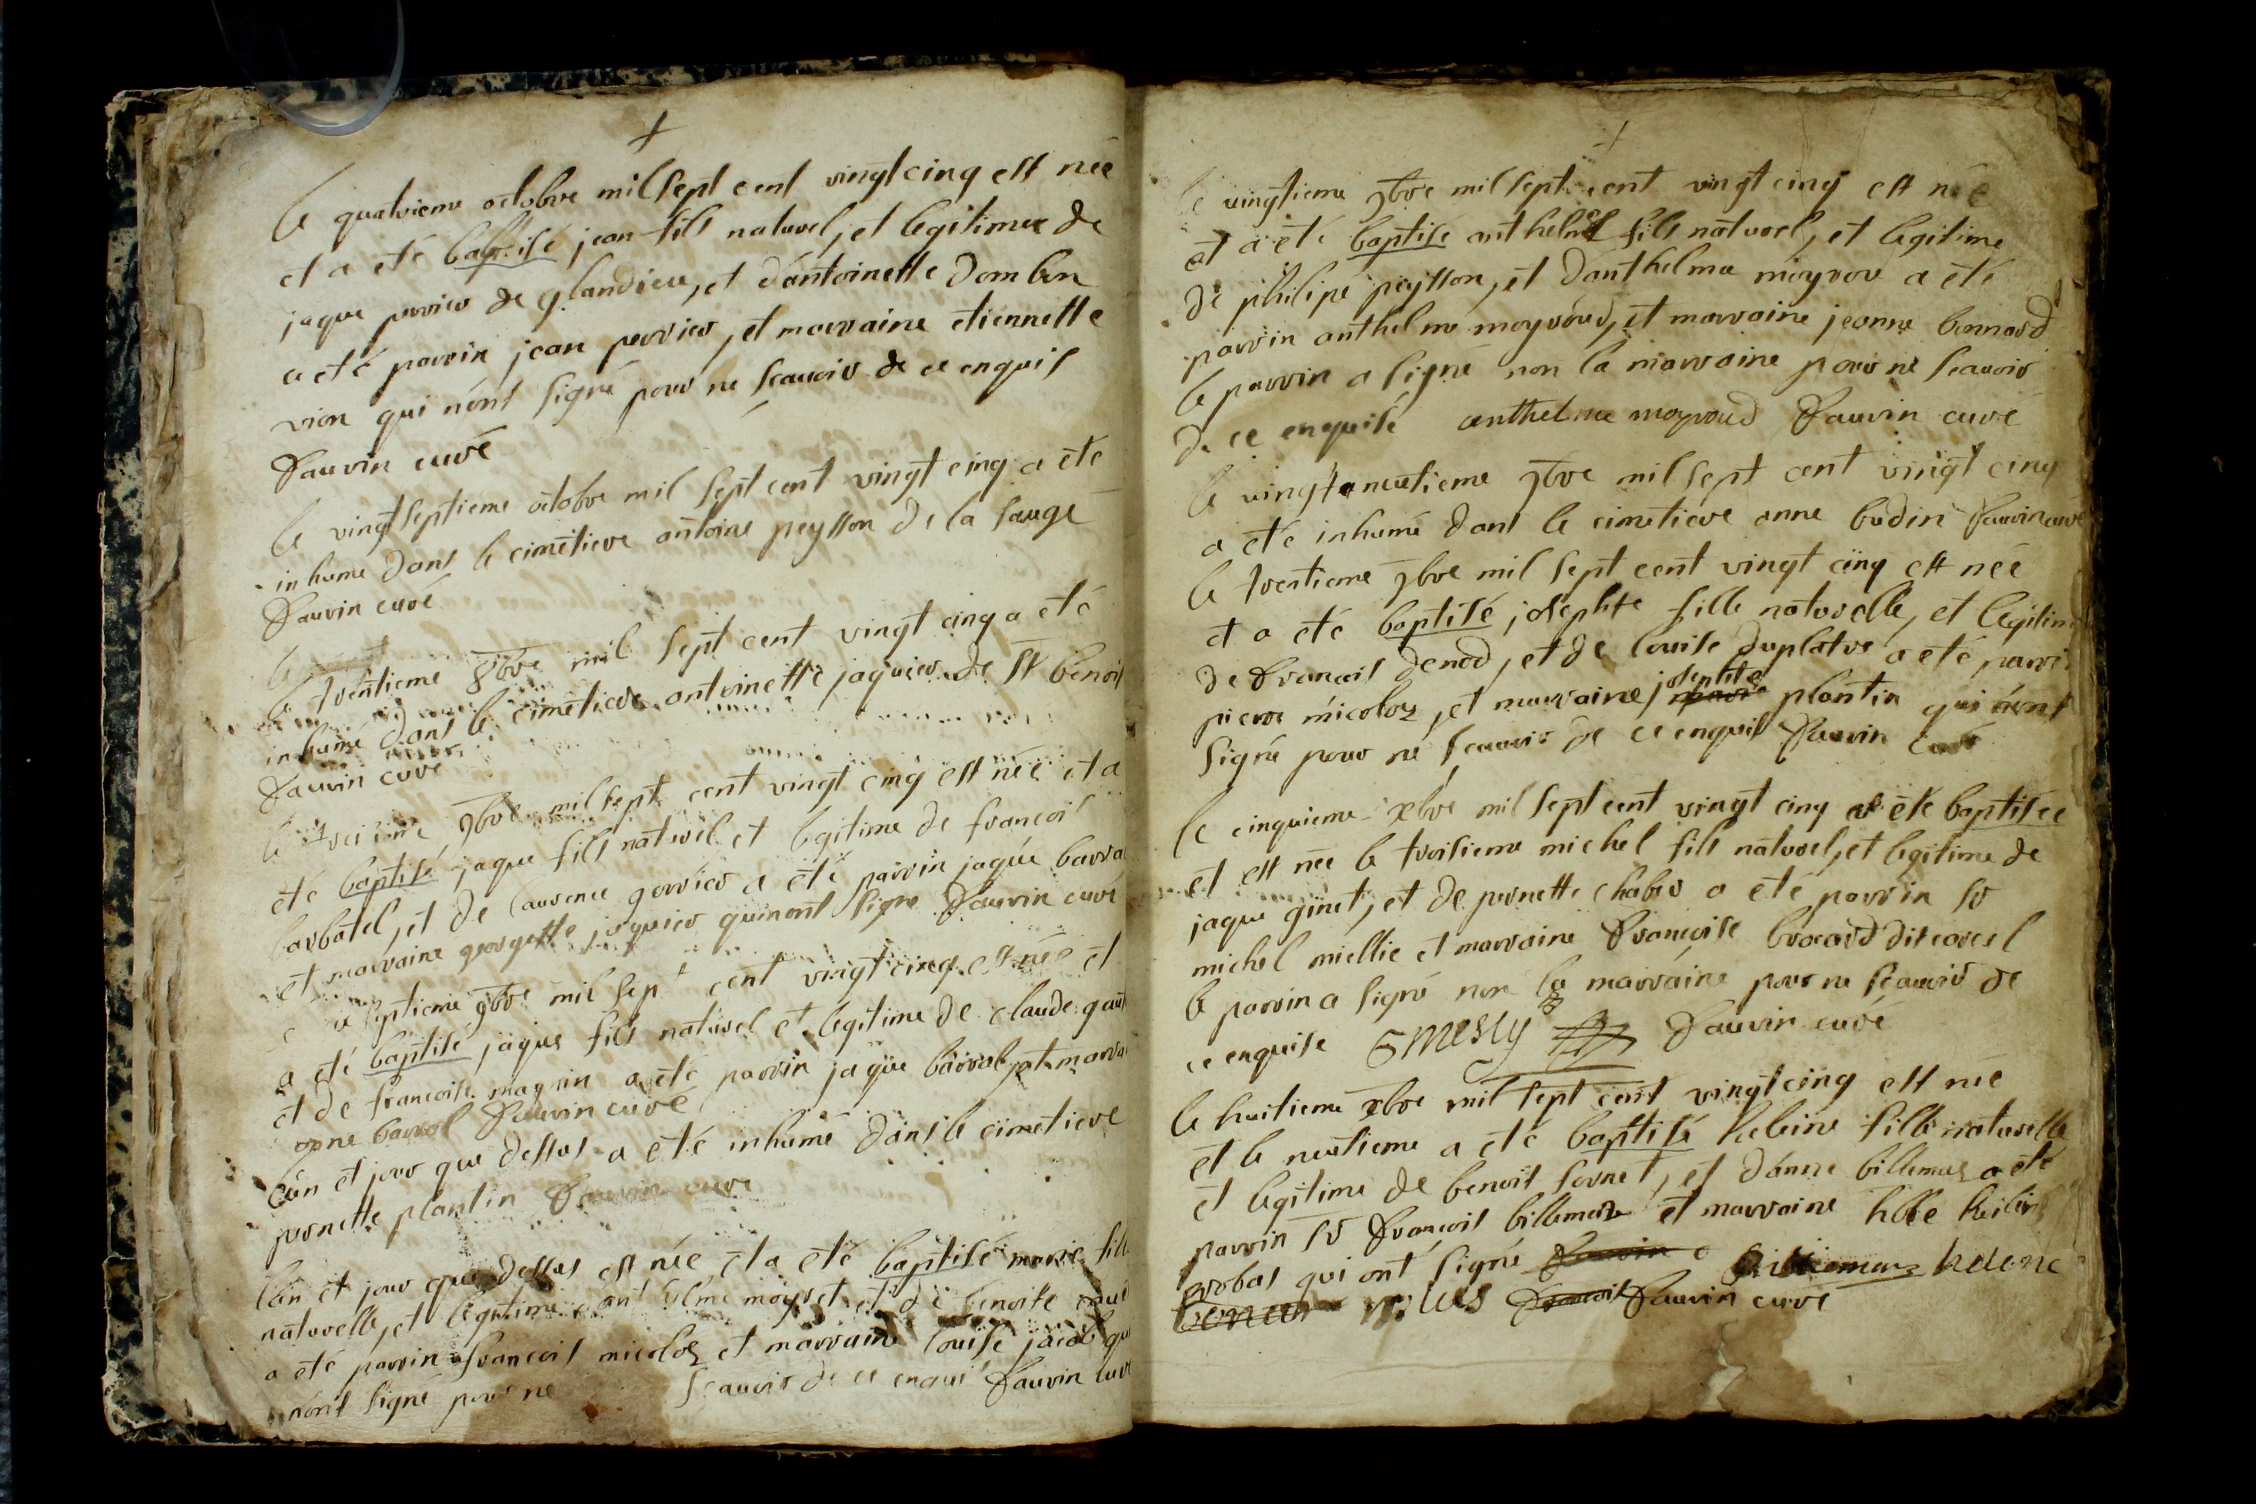 +
le quatrieme octobre mil sept cent vingt cinq est née
et a eté baptisé jean fils naturel, et legitime de
jaque perrier de glandieu, et dántoinette Domben
a eté parrin jean perrier, et marraine etiennette
vion qui nónt signé pour ne scauoir de ce enquis
Fauvin curé
le vingtseptieme octobre mil sept cent vingt cinq a eté
inhume dans le cimetiere antoine peysson de la sauge
Fauvin curé
le trentieme 8bre mil sept cent vingt cinq a eté
inhumé dans le cimetiere antoinette jaquier de St benoit
Fauvin curé
le 9bre mil sept cent vingt cinq est née et a
eté baptisé jaque fils naturel et legitime de francois
barbatel, et de laurence gorrier a eté parrin jaque barra
et marraine georgette jaquier quinont signe Fauvin curé
9bre mil sept cent vingt cinq est née et
a eté baptisé jaque fils naturel et legitime de claude
et de francoise magnin a eté parrin jaque barral et marra
barral Fauvin curé
lán et jour que dessus a eté inhumé dans le cimetiere
pernette plantin Fauvin curé
lán et jour que dessus est née et a eté baptisé marie fille
naturelle, et legitime moyret et de benoite
a eté parrin francois micoloz et marraine louise jacob qui
nónt signé pour ne scauoir de ce enqui Fauvin curé
+
le vingtieme 9bre mil sept cent vingt cinq est née
et a eté baptisé anthelme fils naturel, et legitime
de philipe peysson, et dánthelma moyrou a eté
parrin anthelme moyroud, et marraine jeanne bonnard
le parrin a signé non la marraine pour ne scauoir
de ce enquise anthelme moyroud Fauvin curé
le vingt neutieme 9bre mil sept cent vingt cinq
a eté inhumé dans le cimetiere anne budin Fauvin curé
le trentieme 9bre mil sept cent vingt cinq est née
et a eté baptisé, josephte fille naturelle, et legitime
de Francois Denod, et de louise duplatre a eté parrin
pierre micoloz, et marraine josephte plantin qui nónt
signé pour ne scauoir de ce enquis Fauvin curé
le cinquieme xbre mil sept cent vingt cinq a eté baptisée
et est née le troisieme michel fils naturel, et legitime de
jaque ginet, et de pernette chaber a eté parrin sr
michel miellie et marraine Francoise brocard
le parrin a signé non la marraine pour ne scauoir de
ce enquise Fauvin curé
le huitieme xbre mil sept cent vingt cinq est née
et le neutieme a eté baptisé heleine fille naturelle
et legitime de benoit sornet, et dánne billemaz a eté
parrin sr Francois billemaz et marraine hble heleine
grobas qui ont signé billiemaz helene
Fauvin curé